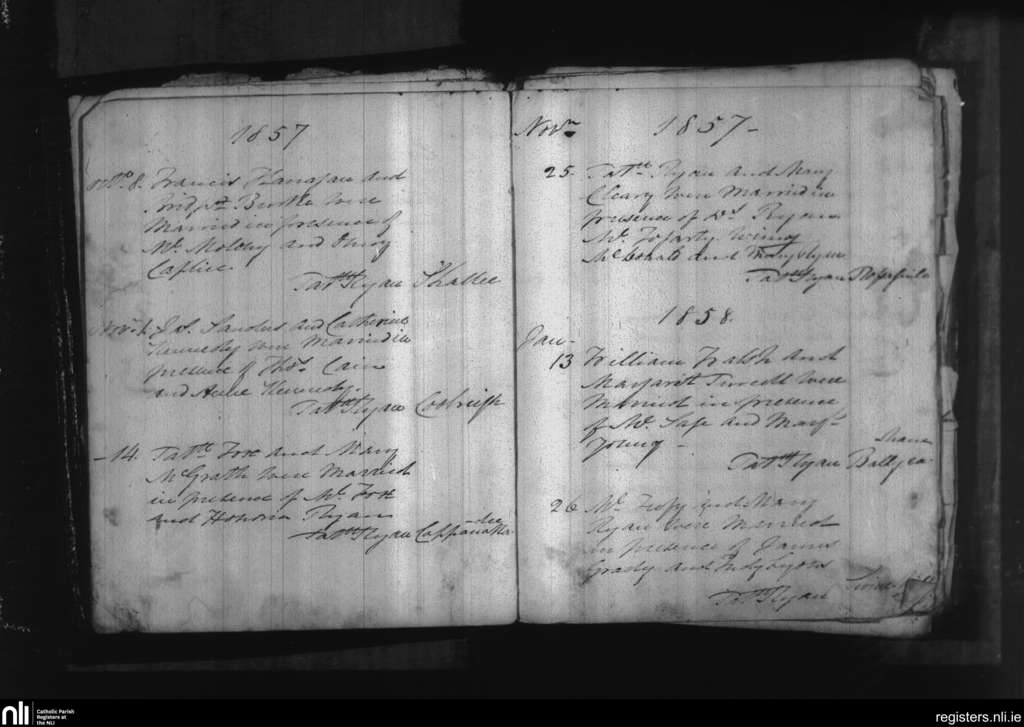 1857
Octr. 8. Francis Flanagan and
Bridgt. Burke were
Married in presence of
Ml. Molony and
Patk. Ryan Shallee
Novr. 1. Jas. Sanders and Catherine
Kennedy were Married in
presence of Thos. Cain
and Kennedy
Patk. Ryan
14. Patk. Fox and Mary
McGrath were Married
in presence of Ml. Fox
and Honora Ryan
Patk. Ryan
Novr. 1857
25. Patk. Ryan and Mary
Cleary were Married in
presence of Ryan
Ml. Fogarty
McDonald and Mary Ryan
Patk. Ryan
1858.
Jan
13 William Walsh and
Margaret Purcell were
Married in presence
of and
Young
Patk. Ryan
26 Ml. and Mary
Ryan were Married
in presence of James
Grady and Judy Lyons
Patk. Ryan
nli Catholic Parish
Registers at
the NLI
registers.nli.ie